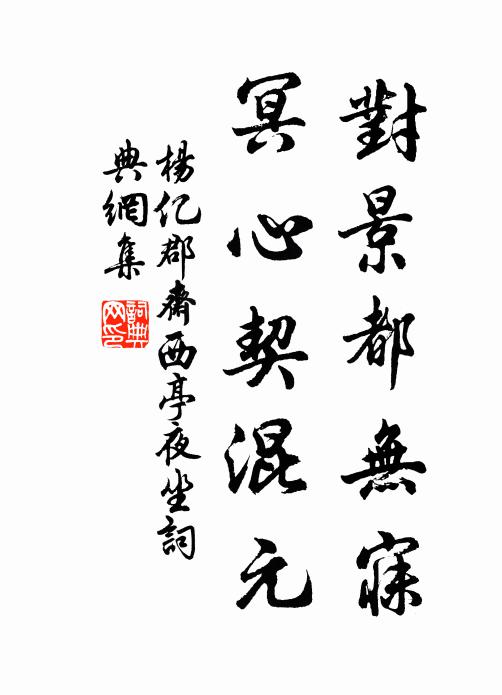 對景都無寐
冥心契混元
楊億郡齋西亭夜坐詞
典網集
詞典
网印